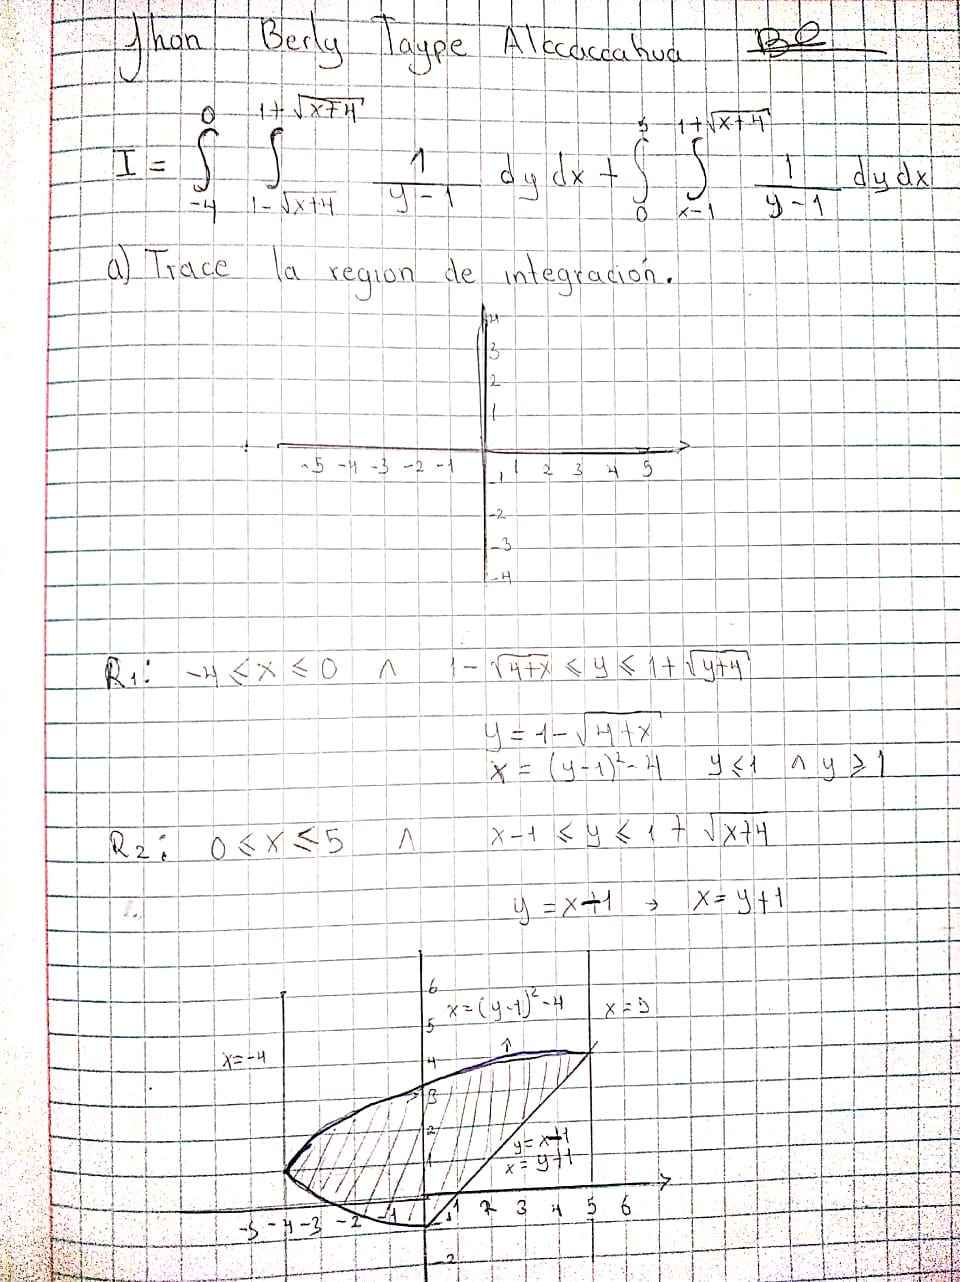 Jhon Berly Taype Alccaccahua BO
0 1+√x+4 5 1+√x+4
I = ∫ ∫ 1/(y-1) dy dx + ∫ ∫ 1/(y-1) dy dx
-4 1-√x+4 0 x-1
a) Trace la region de integración.
4
3
2
1
-5 -4 -3 -2 -1 1 2 3 4 5
-1
-2
-3
-4
R1: -4 ≤ x ≤ 0 ∧ 1-√4+x ≤ y ≤ 1+√y+4
y = 1-√4+x
x = (y-1)²-4 y≤1 ∧ y≥1
R2: 0 ≤ x ≤ 5 ∧ x-1 ≤ y ≤ 1+√x+4
y = x+1 → x = y+1
6
x=(y-1)²-4 x=5
5
x=-4 4
3
2
y=x+1
1 x=y+1
-5 -4 -3 -2 -1 1 2 3 4 5 6
-1
-2